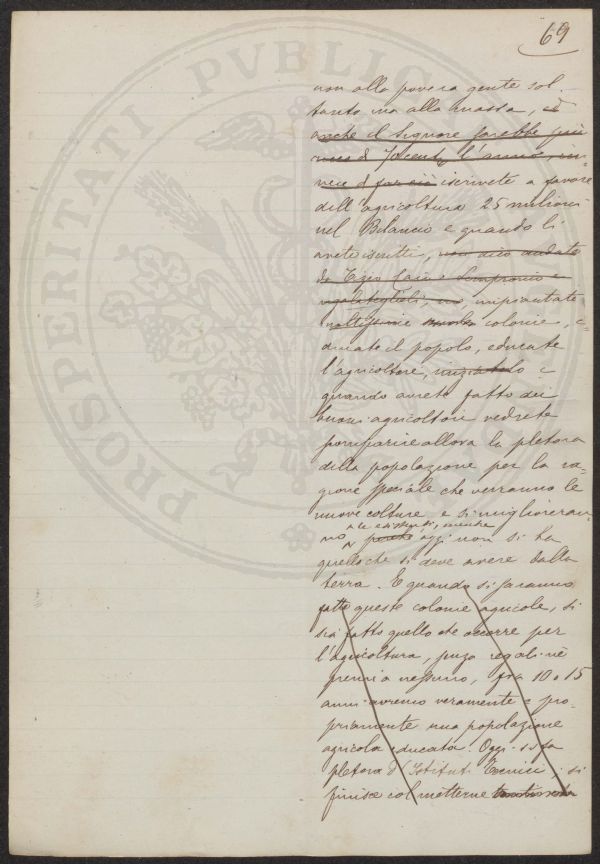 69
PROSPERITATI PVBLICAE
non alla povera gente sol-
tanto ma alla massa, ed
anche il Signore sarebbe più
l'anno, in-
vece di far ciò iscrivete a favore
dell'agricoltura 25 milioni
nel Bilancio e quando li
avete iscritti, non dico andate
da Tizio Caio Sempronio e
impiantate
moltissime molte colonie, e-
ducate il popolo, educate
l'agricoltore, e
quando avrete fatto dei
buoni agricoltori vedrete
scomparire allora la pletora
della popolazione per la ra-
gione speciale che verranno le
nuove colture e si miglioreran-
le esistenti, mentre
no perché oggi non si ha
quello che si deve avere dalla
terra. E quando si saranno
fatte queste colonie agricole, si
sia fatto quello che occorre per
l'agricoltura, regali nè
premi a nessuno, fra 10 o 15
anni avremo veramente e pro-
priamente una popolazione
agricola educata. Oggi si fa
pletora d'Istituti Tecnici, si
finisce col metterne